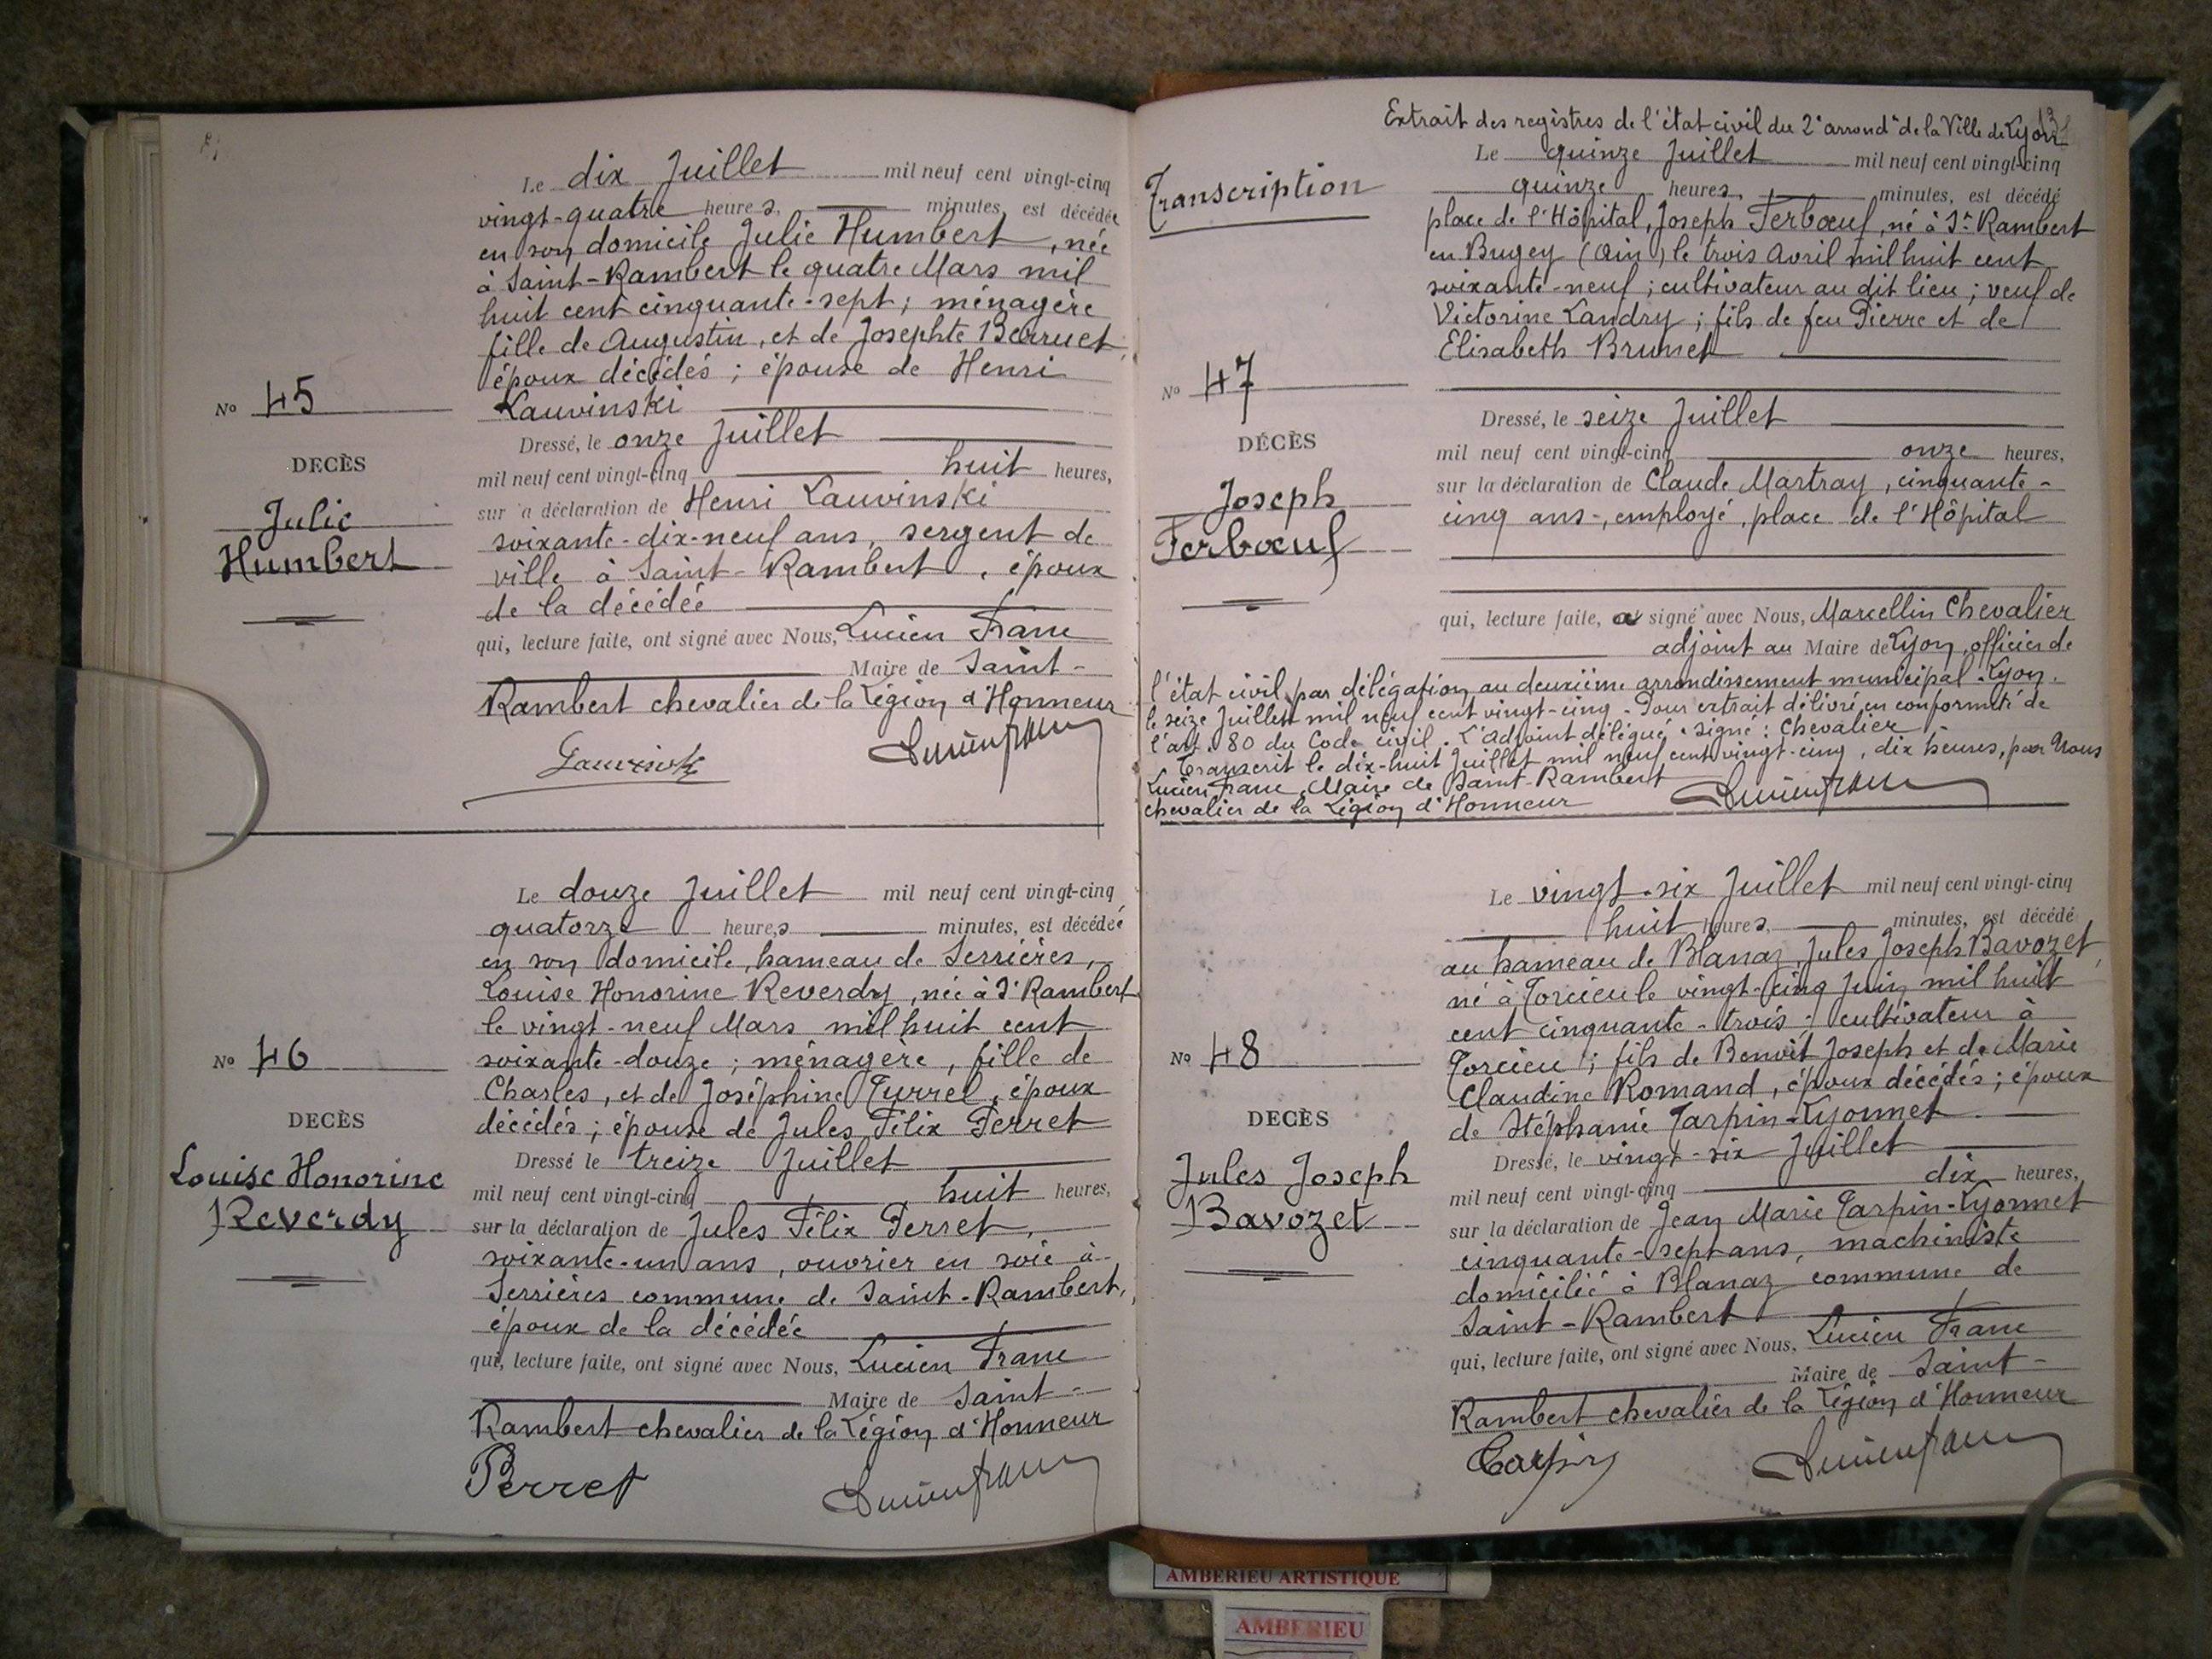 Le dix Juillet mil neuf cent vingt-cinq
vingt-quatre heures, minutes, est décédée
en son domicile Julie Humbert, née
à Saint-Rambert le quatre Mars mil
huit cent cinquante-sept; ménagère
fille de Augustin, et de Josephte Berruet,
époux décédés; épouse de Henri
Lauvinski
No 45
DECÈS
Julie
Humbert
Dressé, le onze Juillet
mil neuf cent vingt-cinq huit heures,
sur a déclaration de Henri Lauvinski
soixante-dix-neuf ans, sergent de
ville à Saint-Rambert, époux
de la décédée
qui, lecture faite, ont signé avec Nous, Lucien Franc
Maire de Saint-
Rambert chevalier de la Légion d'Honneur
Le douze Juillet mil neuf cent vingt-cinq
quatorze heures minutes, est décédée
en son domicile, hameau de Serrières,
Louise Honorine Reverdy, née à St Rambert
le vingt-neuf Mars mil huit cent
soixante-douze; ménagère, fille de
Charles, et de Joséphine Turrel, époux
décédés; épouse de Jules Félix Perret
No 46
DECÈS
Louise Honorine
Reverdy
Dressé le treize Juillet
mil neuf cent vingt-cinq huit heures,
sur la déclaration de Jules Félix Perret,
soixante-un ans, ouvrier en soie à
Serrières commune de Saint-Rambert,
époux de la décédée
qui, lecture faite, ont signé avec Nous, Lucien Franc
Maire de Saint-
Rambert chevalier de la Légion d'Honneur
Perret Lucien Franc
Extrait des registres de l'état civil du 2e arrondt de la Ville de Lyon
Transcription
Le quinze Juillet mil neuf cent vingt-cinq
quinze heures, minutes, est décédé
place de l'Hôpital, Joseph Ferbœuf, né à St Rambert
en Bugey (Ain) le trois Avril mil huit cent
soixante-neuf; cultivateur au dit lieu; veuf de
Victorine Landry; fils de feu Pierre et de
Elisabeth Brunet
No 47
DÉCÈS
Joseph
Ferbœuf
Dressé, le seize Juillet
mil neuf cent vingt-cinq onze heures,
sur la déclaration de Claude Martray, cinquante-
cinq ans, employé, place de l'Hôpital
qui, lecture faite, a signé avec Nous, Marcellin Chevalier
adjoint au Maire de Lyon, officier de
l'état civil par délégation au deuxième arrondissement municipal. Lyon.
le seize Juillet mil neuf cent vingt-cinq. Pour extrait délivré en conformité de
l'art. 80 du Code civil. L'Adjoint délégué. signé: Chevalier.
Transcrit le dix-huit Juillet mil neuf cent vingt-cinq, dix heures, par Nous
Lucien Franc, Maire de Saint-Rambert
chevalier de la Légion d'Honneur Lucien Franc
Le vingt-six Juillet mil neuf cent vingt-cinq
huit heures, minutes, est décédé
au hameau de Blanaz, Jules Joseph Bavozet,
né à Torcieu le vingt-cinq Juin mil huit
cent cinquante-trois; cultivateur à
Torcieu; fils de Benoît Joseph et de Marie
Claudine Romand, époux décédés; époux
de Stéphanie Tarpin-Lyonnet
No 48
DECÈS
Jules Joseph
Bavozet
Dressé, le vingt-six Juillet
mil neuf cent vingt-cinq dix heures,
sur la déclaration de Jean Marie Tarpin-Lyonnet
cinquante-sept ans, machiniste
domicilié à Blanaz commune de
Saint-Rambert
qui, lecture faite, ont signé avec Nous, Lucien Franc
Maire de Saint-
Rambert chevalier de la Légion d'Honneur
Tarpin Lucien Franc
AMBERIEU ARTISTIQUE
AMBERIEU